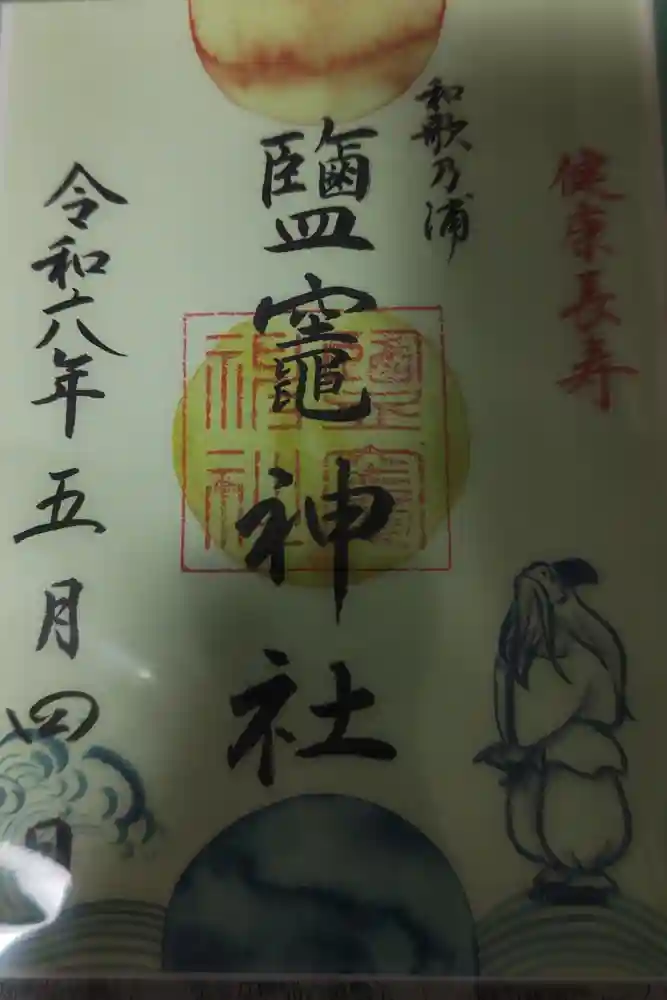 健康長寿
和歌乃浦
鹽竈神社
鹽竈神社
令和六年五月四日